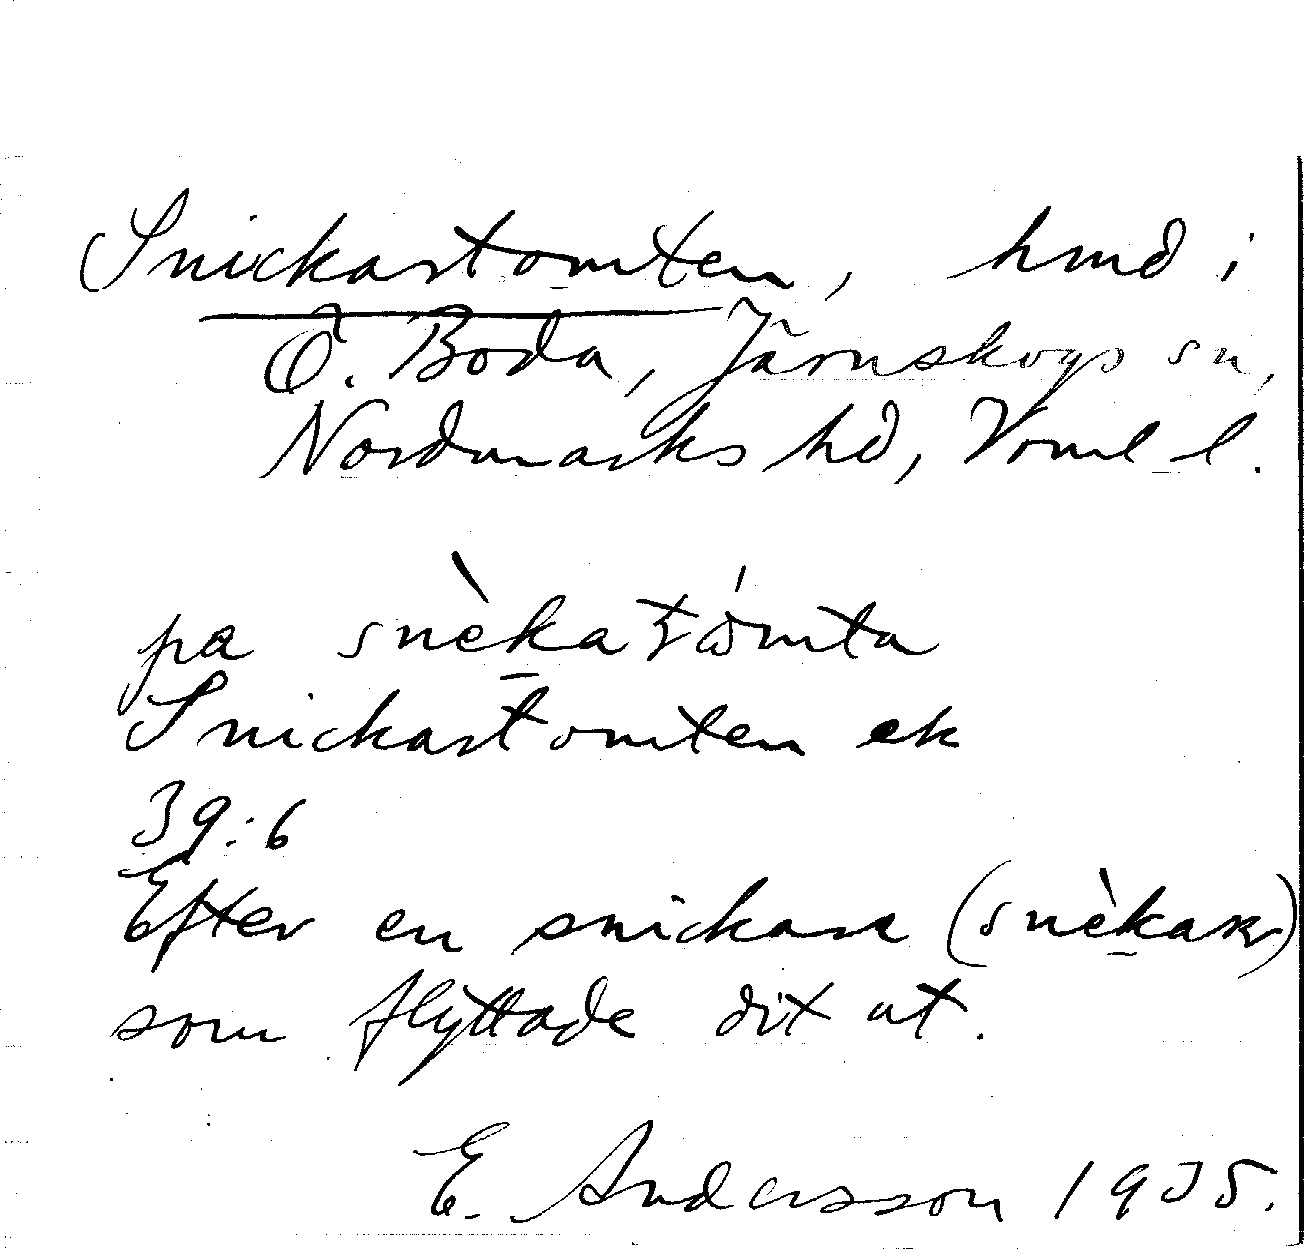 Snickartomten, hmd i
Ö. Boda, Järnskogs sn,
Nordmarks hd, Vrml l.
pa snèkatómta
Snickartomten ek
39:6
Efter en snickare (snèkar)
som flyttade dit ut.
E. Andersson 1935.